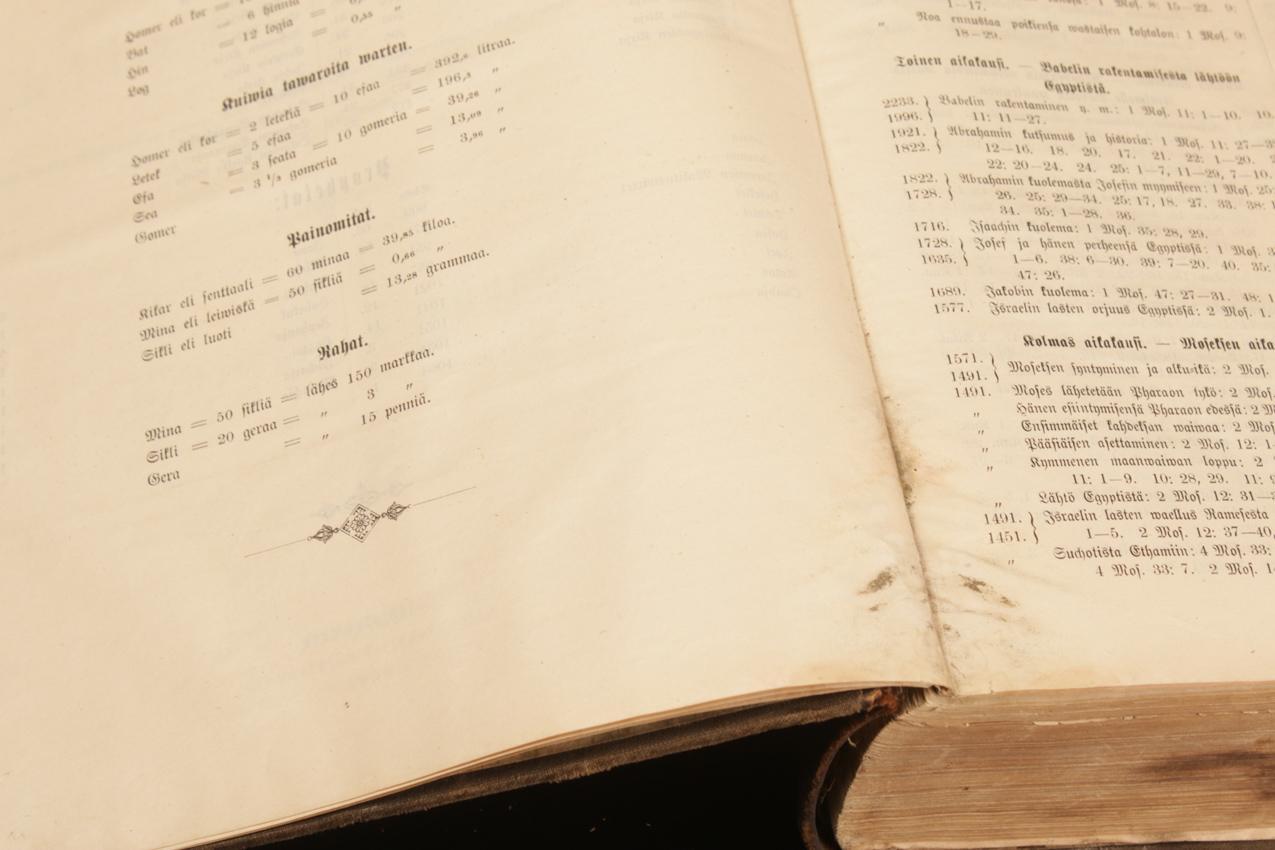 Homer eli kor =
Bat = 6 hinniä
Hin = 12 logia
Log = 0,55 "
Kuiwia tawaroita warten.
Homer eli kor = 2 letekiä = 10 efaa = 392,8 litraa.
Letek = 5 efaa = 196,5 "
Efa = 3 seata = 10 gomeria = 39,28 "
Sea = 3 1/3 gomeria = 13,09 "
Gomer = 3,96 "
Painomitat.
Kikar eli senttaali = 60 minaa = 39,85 kiloa.
Mina eli leiwiskä = 50 sikliä = 0,66 "
Sikli eli luoti = 13,28 grammaa.
Rahat.
Mina = 50 sikliä = lähes 150 markkaa.
Sikli = 20 geraa = " 3 "
Gera = " 15 penniä.
1 Mos. 8: 15—22. 9:
1—17.
" Noa ennustaa poikiensa wastaisen kohtalon: 1 Mos. 9:
18—29.
Toinen aikakausi. — Babelin rakentamisesta lähtöön
Egyptistä.
2233. } Babelin rakentaminen y. m.: 1 Mos. 11: 1—10. 10.
1996. } 11: 11—27.
1921. } Abrahamin kutsumus ja historia: 1 Mos. 11: 27—
1822. } 12—16. 18. 20. 17. 21. 22: 1—20.
22: 20—24. 24. 25: 1—7, 11—29, 7—10.
1822. } Abrahamin kuolemasta Josefin myymiseen: 1 Mos. 25:
1728. } 26. 25: 29—34. 25: 17, 18. 27. 33. 38:
34. 35: 1—28. 36.
1716. Isaachin kuolema: 1 Mos. 35: 28, 29.
1728. } Josef ja hänen perheensä Egyptissä: 1 Mos.
1635. } 1—6. 38: 6—30. 39: 7—20. 40. 35:
47: 26.
1689. Jakobin kuolema: 1 Mos. 47: 27—31. 48: 1
1577. Israelin lasten orjuus Egyptissä: 2 Mos. 1.
Kolmas aikakausi. — Moseksen aika
1571. } Moseksen syntyminen ja alku-ikä: 2 Mos.
1491. }
1491. Moses lähetetään Pharaon tykö: 2 Mos.
" Hänen esiintymisensä Pharaon edessä: 2 M
" Ensimmäiset kahdeksan waiwaa: 2 Mos.
" Pääsiäisen asettaminen: 2 Mos. 12: 1
" Kymmenen maanwaiwan loppu: 2
11: 1—9. 10: 28, 29. 11:
" Lähtö Egyptistä: 2 Mos. 12: 31—
1491. } Israelin lasten waellus Ramesesta
1451. } 1—5. 2 Mos. 12: 37—40,
" Suchotista Ethamiin: 4 Mos. 33:
4 Mos. 33: 7. 2 Mos. 1